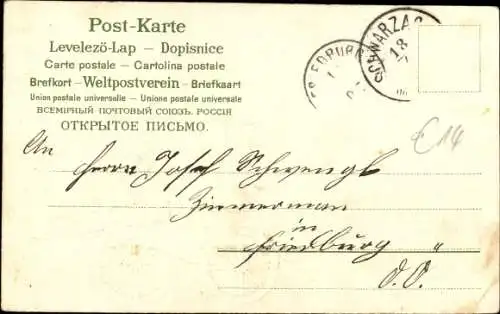 Post-Karte
Levelező-Lap — Dopisnice
Carte postale — Cartolina postale
Brefkort — Weltpostverein — Briefkaart
Union postale universelle — Unione postale universale
ВСЕМІРНЫЙ ПОЧТОВЫЙ СОЮЗЪ. РОССІЯ
ОТКРЫТОЕ ПИСЬМО.
EDBURG
SCHWARZA
18
€14
An
Herrn Josef Schwengl
Zimmerman
in
Friedburg "
O.Ö.